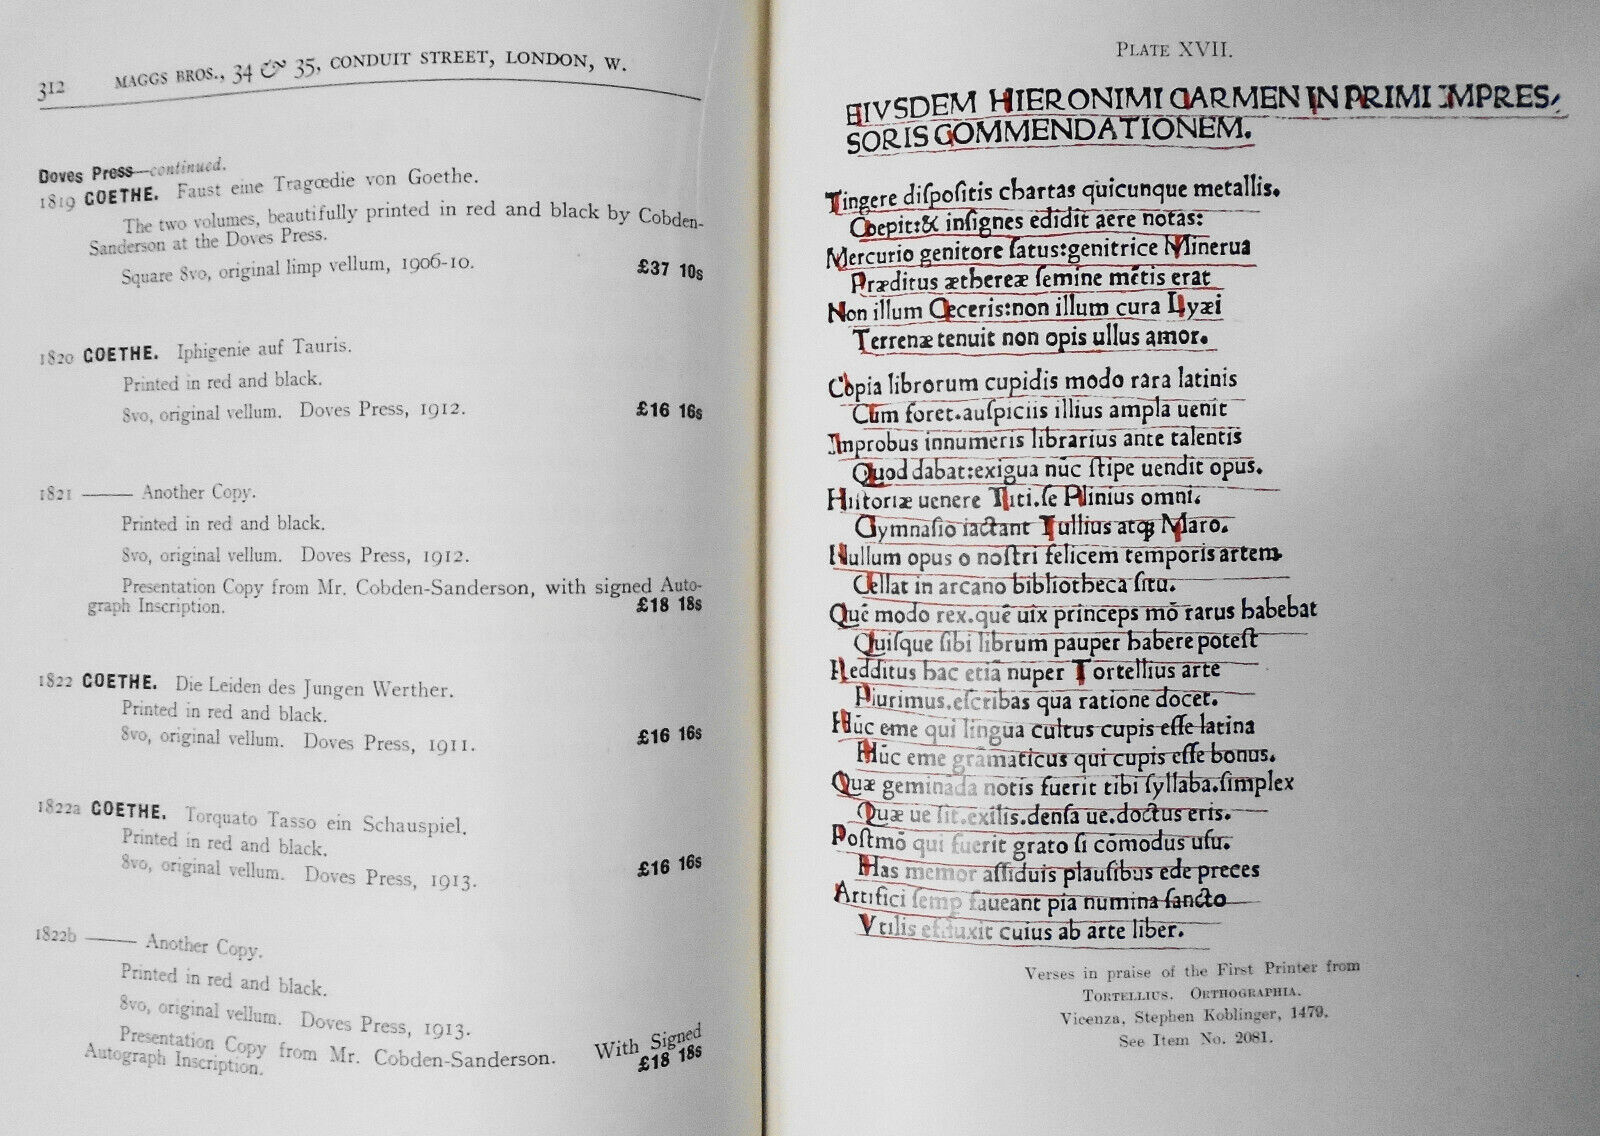 312 MAGGS BROS., 34 & 35, CONDUIT STREET, LONDON, W.
Doves Press—continued.
1819 GOETHE. Faust eine Tragœdie von Goethe.
The two volumes, beautifully printed in red and black by Cobden-
Sanderson at the Doves Press.
Square 8vo, original limp vellum, 1906-10. £37 10s
1820 GOETHE. Iphigenie auf Tauris.
Printed in red and black.
8vo, original vellum. Doves Press, 1912. £16 16s
1821 —— Another Copy.
Printed in red and black.
8vo, original vellum. Doves Press, 1912.
Presentation Copy from Mr. Cobden-Sanderson, with signed Auto-
graph Inscription. £18 18s
1822 GOETHE. Die Leiden des Jungen Werther.
Printed in red and black.
8vo, original vellum. Doves Press, 1911. £16 16s
1822a GOETHE. Torquato Tasso ein Schauspiel.
Printed in red and black.
8vo, original vellum. Doves Press, 1913. £16 16s
1822b —— Another Copy.
Printed in red and black.
8vo, original vellum. Doves Press, 1913.
Presentation Copy from Mr. Cobden-Sanderson. With Signed
Autograph Inscription. £18 18s
PLATE XVII.
EIVSDEM HIERONIMI CARMEN IN PRIMI IMPRES,
SORIS COMMENDATIONEM.
Tingere diſpoſitis chartas quicunque metallis.
Coepit:& inſignes edidit aere notas:
Mercurio genitore ſatus:genitrice Minerua
Præditus æthereæ ſemine mẽtis erat
Non illum Ceceris:non illum cura Lyæi
Terrenæ tenuit non opis ullus amor.
Copia librorum cupidis modo rara latinis
Cum foret.auſpiciis illius ampla uenit
Improbus innumeris librarius ante talentis
Quod dabat:exigua nũc ſtipe uendit opus.
Hiſtoriæ uenere Titi.ſe Plinius omni.
Gymnaſio iactant Tullius atqꝫ Maro.
Nullum opus o noſtri felicem temporis artem
Cellat in arcano bibliotheca ſitu.
Quẽ modo rex.quẽ uix princeps mõ rarus habebat
Quiſque ſibi librum pauper habere poteſt
Redditus hac etiã nuper Tortellius arte
Plurimus.eſcribas qua ratione docet.
Hũc eme qui lingua cultus cupis eſſe latina
Hũc eme grãmaticus qui cupis eſſe bonus.
Quæ geminada notis fuerit tibi ſyllaba.ſimplex
Quæ ue ſit.exilis.denſa ue.doctus eris.
Poſtmõ qui fuerit grato ſi cõmodus uſu.
Has memor aſſiduis plauſibus ede preces
Artifici ſemp faueant pia numina ſancto
Vtilis effluxit cuius ab arte liber.
Verses in praise of the First Printer from
TORTELLIUS. ORTHOGRAPHIA.
Vicenza, Stephen Koblinger, 1479.
See Item No. 2081.